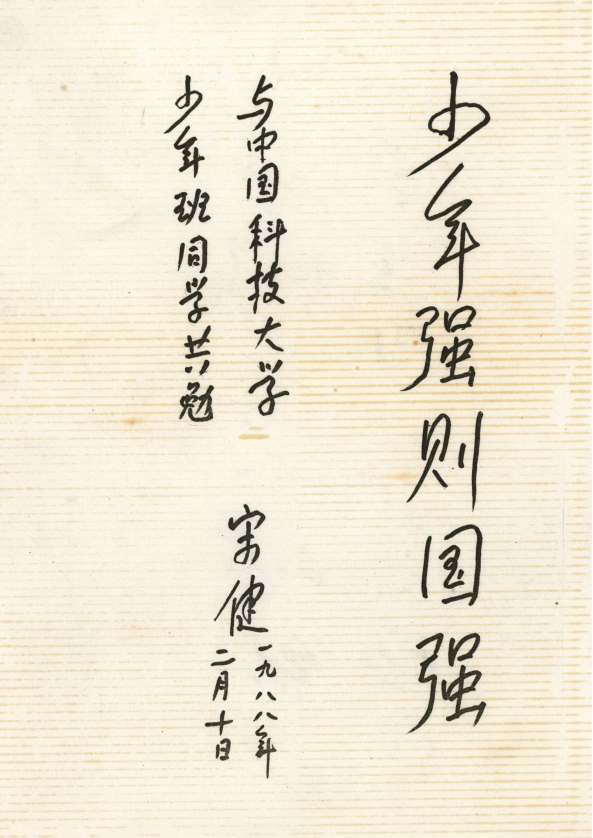 少年强则国强
与中国科技大学
少年班同学共勉
宋健
一九八八年
二月十日